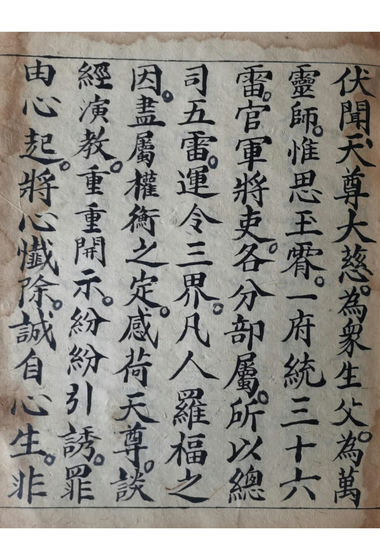 伏聞天尊大慈。為衆生父。為萬
靈師。惟思玉霄。一府統三十六
雷。官軍將吏。各分部屬。所以總
司五雷。運令三界。凡人羅福之
因。盡屬權衡之定。感荷天尊。談
經演教。重重開示。紛紛引誘。罪
由心起。將心懺除。誠自心生。非